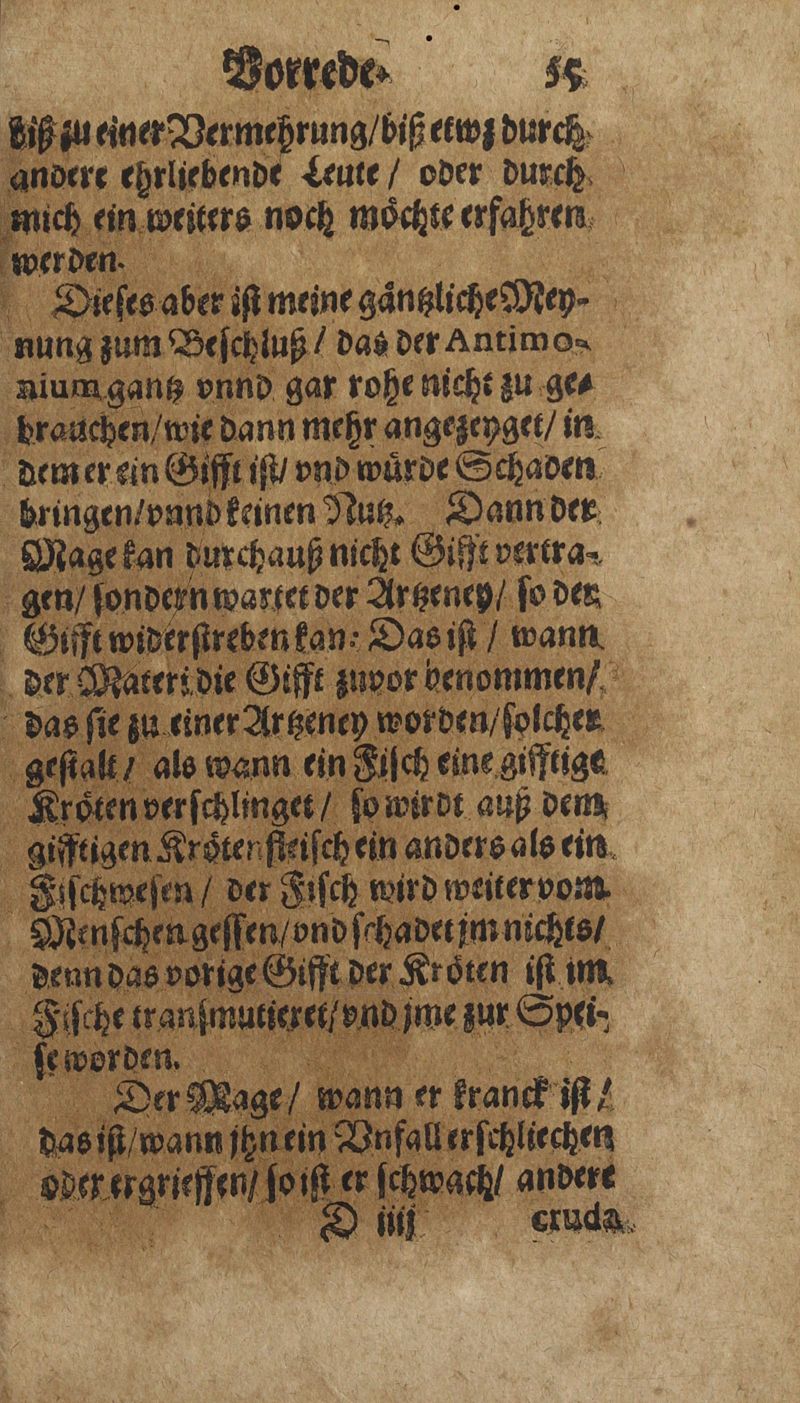 Vorrede. 55
biß zu einer Vermehrung/ biß etwz durch
andere ehrliebende Leute / oder durch
mich ein weiters noch möchte erfahren
werden.
Dieses aber ist meine gäntzliche Mey-
nung zum Beschluß / das der Antimo-
nium gantz vnnd gar rohe nicht zu ge-
brauchen/ wie dann mehr angezeyget/ in
dem er ein Gifft ist/ vnd würde Schaden
bringen/ vnnd keinen Nutz. Dann der
Mage kan durchauß nicht Gifft vertra-
gen/ sondern wartet der Artzeney/ so der
Gifft widerstreben kan: Das ist / wann
der Materi die Gifft zuvor benommen/
das sie zu einer Artzeney worden/ solcher
gestalt / als wann ein Fisch eine gifftige
Kröten verschlinget / so wirdt auß dem
gifftigen Krötenfleisch ein anders als ein
Fischwesen / der Fisch wird weiter vom
Menschen gessen/ vnd schadet jm nichts/
denn das vorige Gifft der Kröten ist im
Fische transmutieret/ vnd jme zur Spei-
se worden.
Der Mage / wann er kranck ist /
das ist/ wann jhn ein Vnfall erschliechen
oder ergrieffen/ so ist er schwach/ andere
D iiij cruda